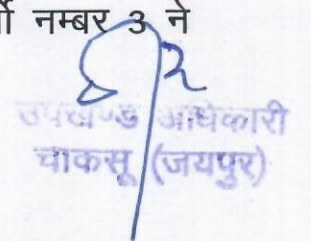 र्ी नम्बर 3 ने
उपखण्ड अधिकारी
चाकसू (जयपुर)